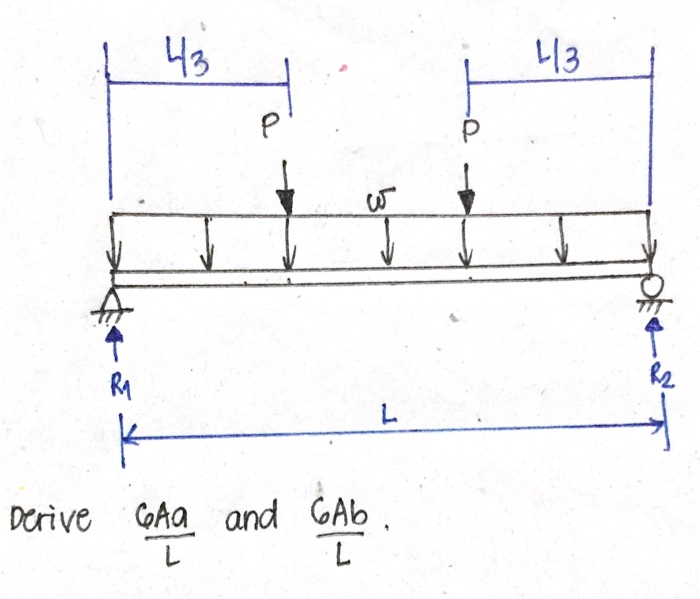 L/3 L/3
P P
w
R1 R2
L
Derive 6Aa/L and 6Ab/L.